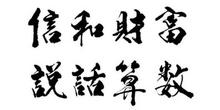 信和財富
説話算数